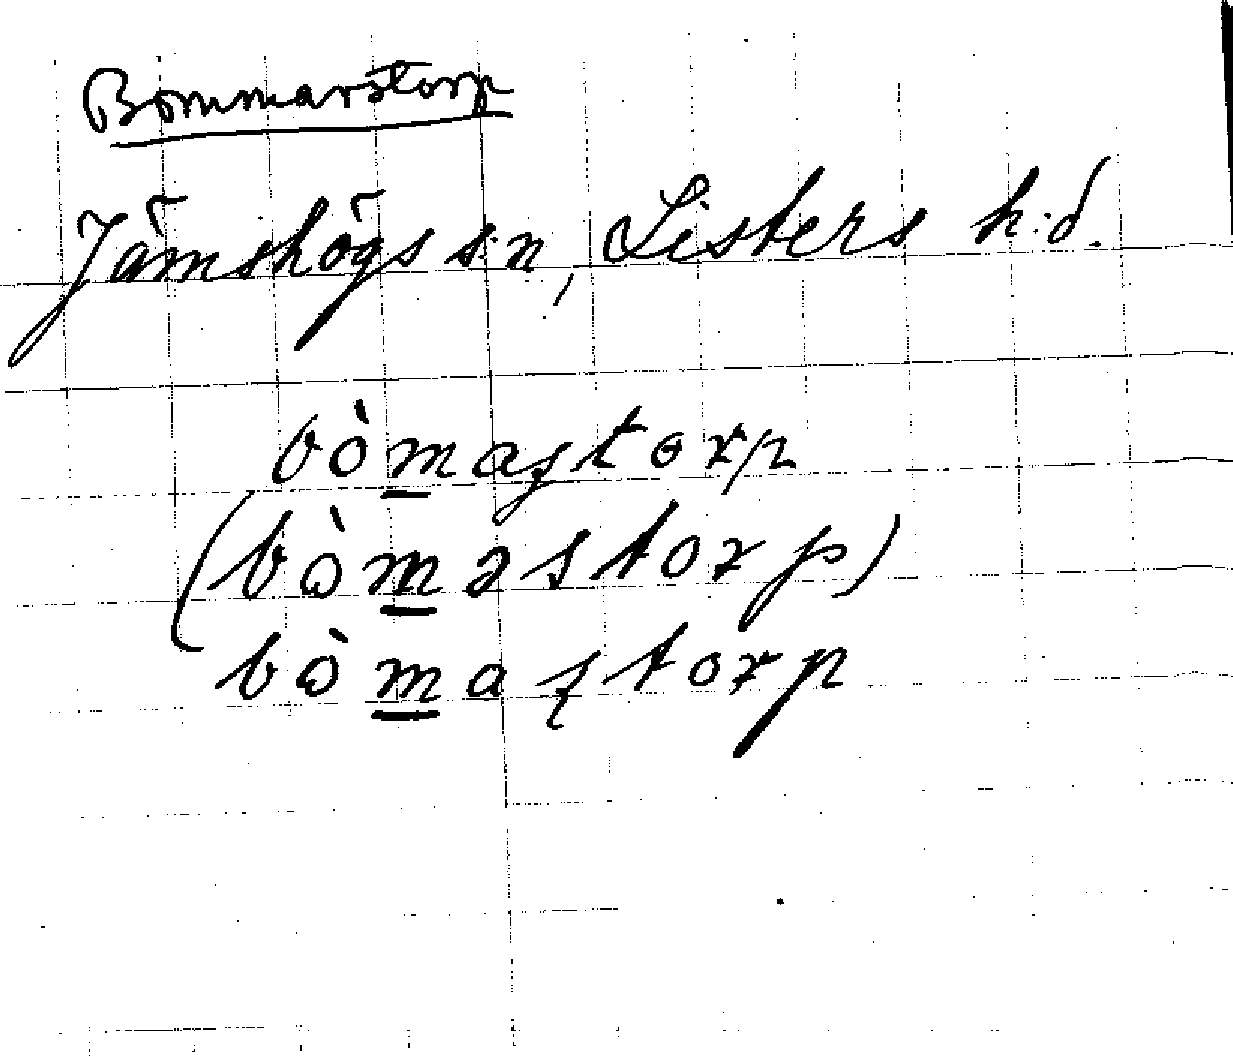 Bommarstorp
Jämshögs s:n, Listers h:d.
bòm̲aʂtorp
(bòm̲əstorp)
bòm̲aʂtorp